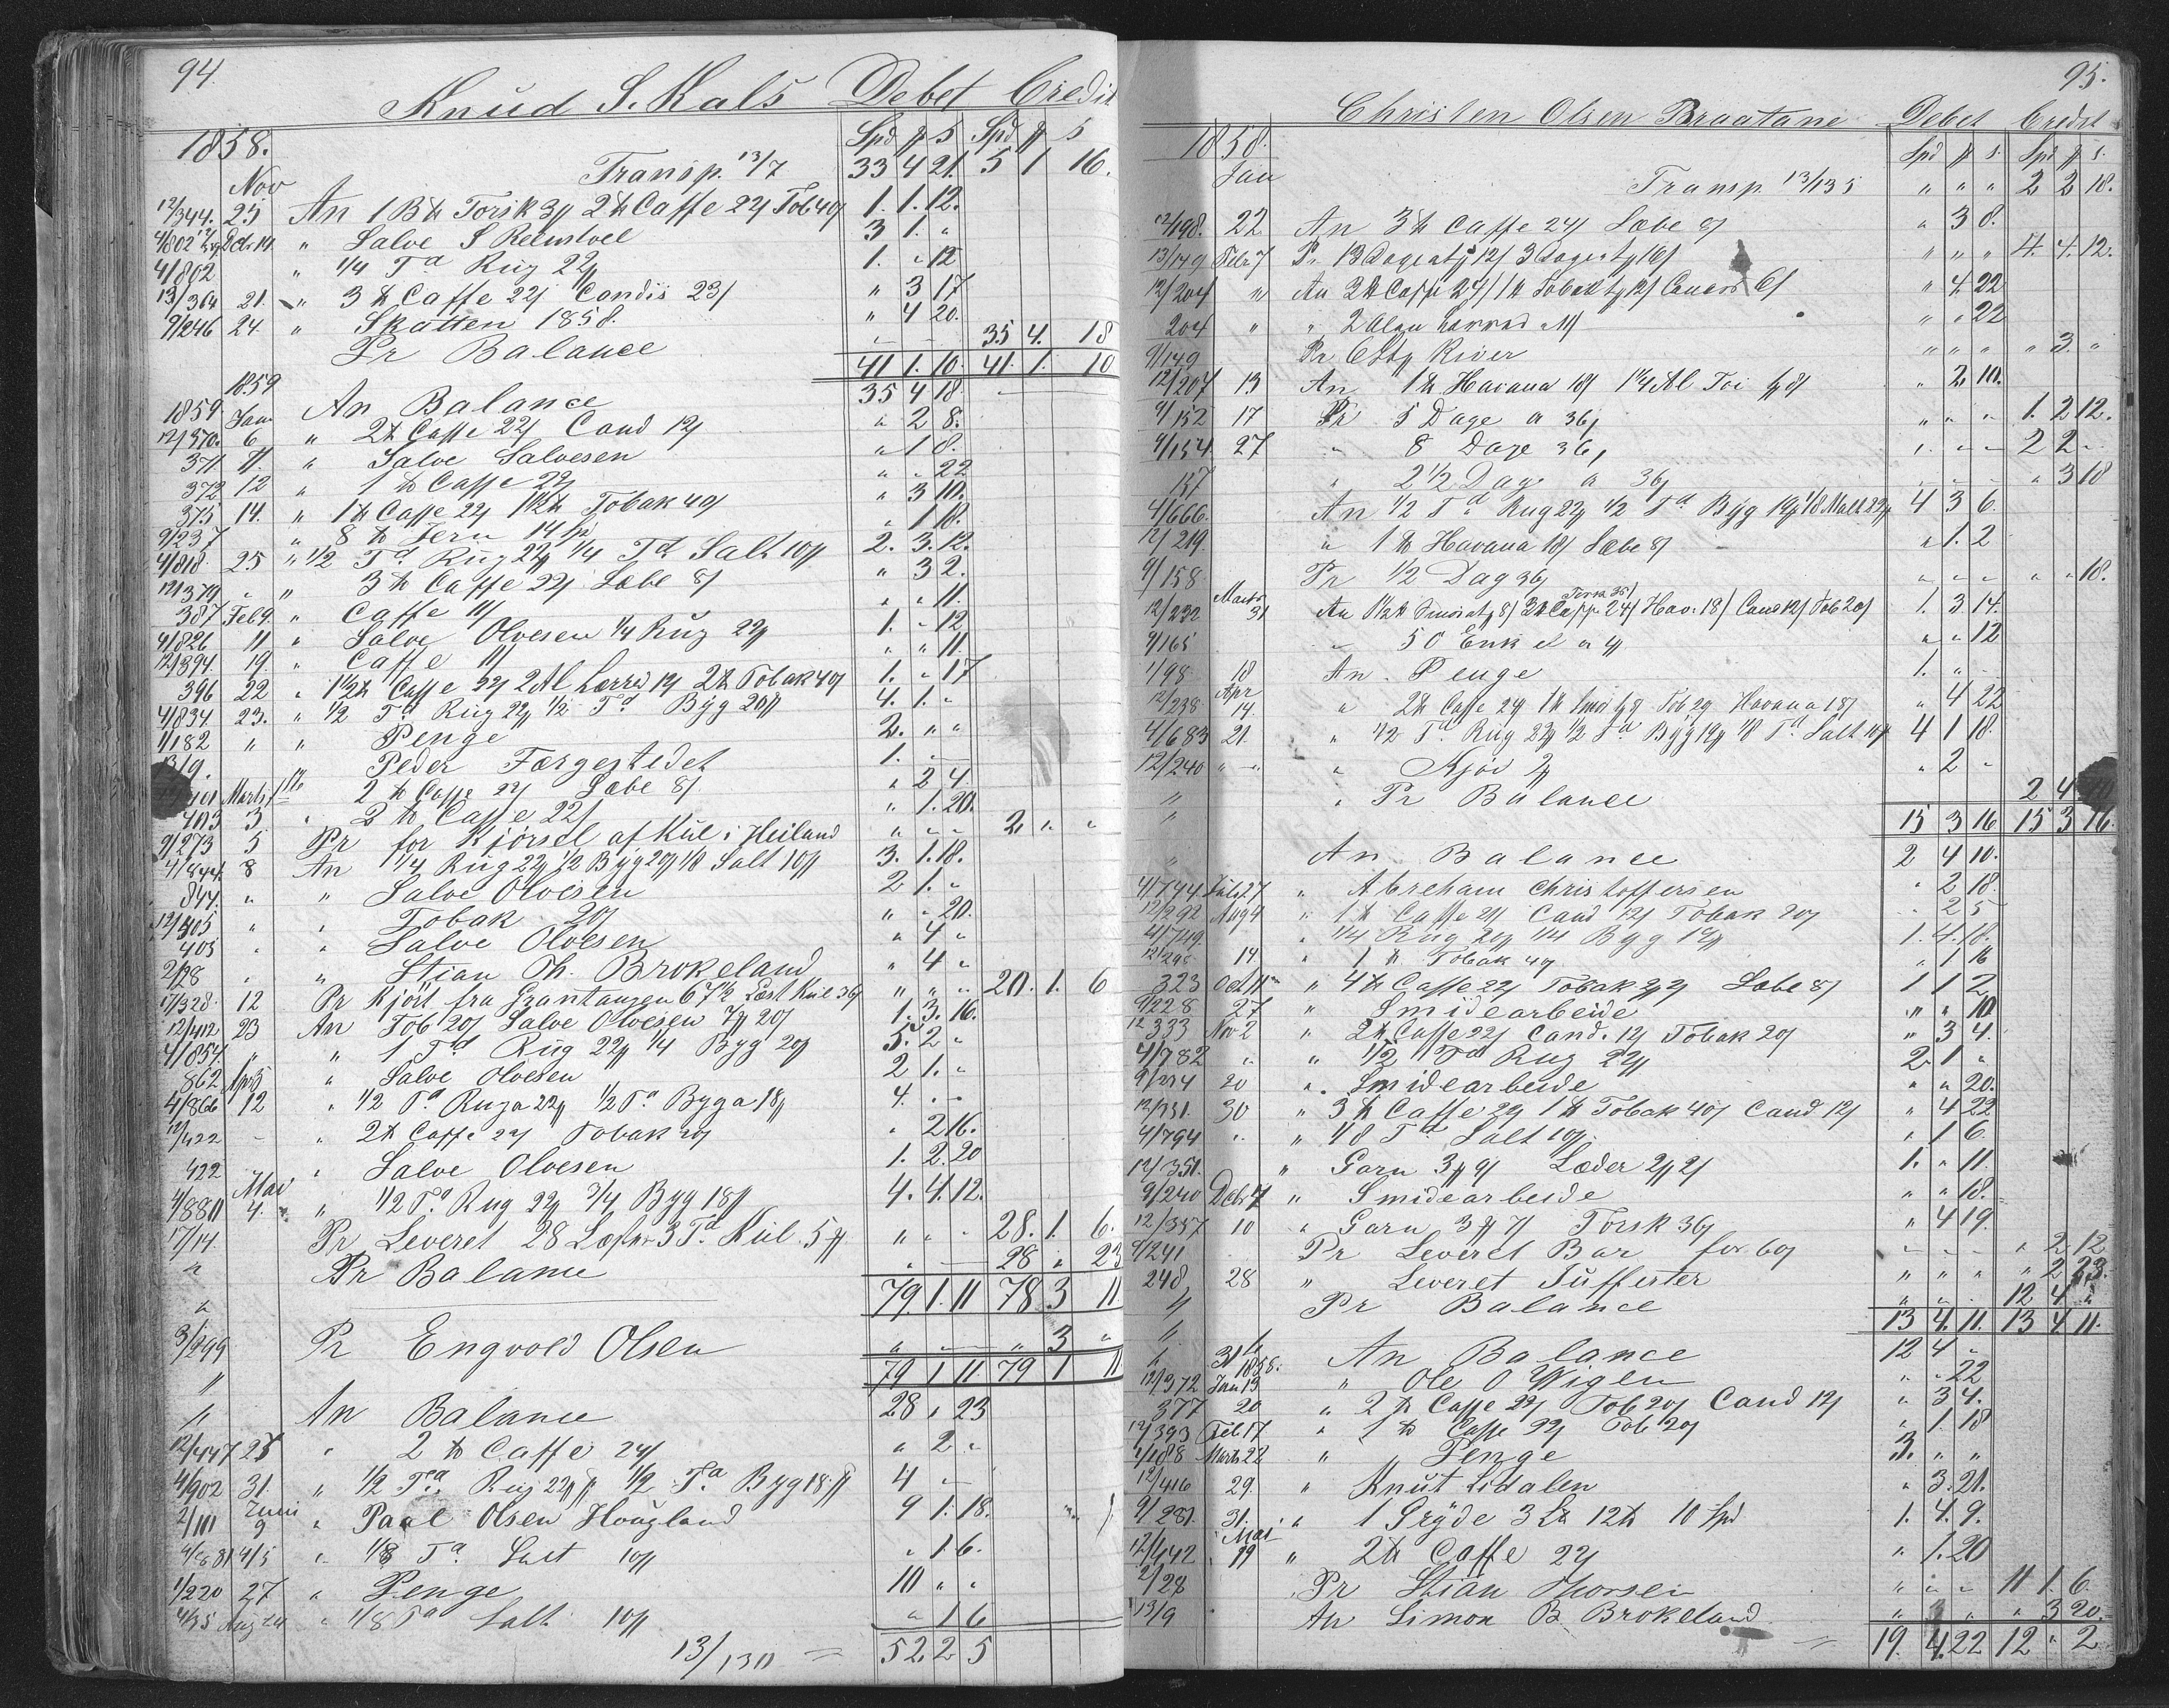 94.
Knud S. Kals Debet Credit
1858. Spd # S Spd # S
Nov Transp. 13/7 33 4 21. 5 1 16.
12/344. 25 An 1 B ℔ Torsk 3# 2 ℔ Caffe 22/ Tob 40/ 1. 1. 12.
4/802 Dcb. 14. " Salve S 3 1. "
4/802 " 1/4 Td Rüg 22# 1. " 12
13/364 21. " 3 ℔ Caffe 22/ Candis 23/ " 3 17
9/246 24 " Skatten 1858. " 4 20.
Pr Balance 35 4. 18
41 1. 10. 41. 1. 10
1859
1859 Jan An Balance 35 4 18
12/370. 6 " 2 ℔ Caffe 22/ Cand 12/ " 2 8.
371. 11. " Salve Salvesen " 1 8.
372 12 " 1 ℔ Caffe 22/ " " 22
375 14. " 1 ℔ Caffe 22/ 1 1/2 ℔ Tobak 40/ " 3 10.
9/237 " 8 ℔ Jern 14 sp " 1 18.
4/818 25 " 1/2 Td Rüg 22# 1/4 Td Salt 10# 2. 3. 12.
12/379 " " 3 ℔ Caffe 22/ Sæbe 8/ " 3 2.
387 Feb 9. " Caffe 11/ " " 11.
4/826 11 " Salve Olvesen 1/4 Rüg 22# 1. " 12
12/394. 19. " Caffe 11/ " " 11.
396 22 " 1 1/2 ℔ Caffe 22/ 2 Al Lærred 12/ 2 ℔ Tobak 40/ 1. " 17
4/834. 23. " 1/2 Td Rüg 22# 1/2 Td Byg 20# 4. 1. "
1/182 " " Penge 2. " "
13/9. Peder Færgestedet 1.
Marts 1ste 2 ℔ Caffe 22/ Sæbe 8/ " 2 4.
403 3 " 2 ℔ Caffe 22/ " 1. 20.
9/273 5 Pr for Kjørsel af Kül i Heiland " " " 2. " "
4/844 8 An 1 1/4 Rüg 22# 1/2 Byg 20# 1/8 Salt 10# 3. 1. 18.
844. " " Salve Olvesen 2 1. "
12/405 " " Tobak 20/ " " 20.
403 " " Salve Olvesen " 4 "
2/28 " " Stian Th. Brokeland " 4 "
17/328. 12 Pr Kjört fra Grantangen 67 1/2 Læst Kul 36/ " " " 20. 1. 6
12/412 23 An Tob 20/ Salve Olvesen 7# 20/ 1. 3. 16.
4/854. " " 1 Td Rüg 22# 1/4 Byg 20/ 5. 2 "
862 Apr 5 " Salve Olvesen 2 1. "
4/866 12 " 1/2 Td Rug a 22# 1/2 Td Byg a 18# 4. " "
12/422 " " 2 ℔ Caffe 22/ Tobak 20/ " 2 16.
422 " Salve Olvesen 1. 2. 20
Mai
4/880 4. " 1/2 Td Rug 22# 3/4 Byg 18# 4. 4. 12.
17/14. Pr Leveret 28 Læster 3 Td Kül. 5# " " " 28. 1. 6.
" Pr Balance " 28 " 23
79 1. 11 78 3 11
3/299 Pr Engvold Olsen " " 3 "
" 79 1 11. 79 1 11.
" An Balance 28 " 23
12/447 25 " 2 ℔ Caffe 24/ " 2 "
4/902 31. " 1/2 Td Rüg 22# 1/2 Td Byg 18# 4 "
Juni
2/111 9 " Paal Olsen Hougland 9 1. 18.
4/881 4/5 " 1/8 Td Salt 10# " 1 6.
1/220 27 " Penge 10 " "
4/35 Aug 24 " 1/8 Td Salt 10# " 1 6
13/130 = 52. 2 5
95.
Christen Olsen Braatane Debet Credit
1858. Spd # s. Spd # s.
Jan Transp. 13/135 " " " 2 2 18.
12/198. 22 An 3 ℔ Caffe 24/ Sæbe 8/ " 3 8.
13/149 Febr 7 Pr 13 12/ 3 16/ " " " 4. 4. 12.
12/204 " An 2 ℔ Caffe 24/ 1 ℔ Tobak 6/ " 4 22
204 " " 2 Alen Lærred 11/ " " 22
9/149 Pr River " " " " 3. "
12/207 13 An 1 ℔ Havana 18/ 1 1/4 Al Toi " 2 10.
9/152 17 Pr 5 Dage a 36/ " " " 1. 2 12.
9/154 27 " 8 Dage 36/ " " " 2 2 "
157 " 2 1/2 Dage a 36/ " 3 18
4/666. An 1/2 Td Rug 22# 1/2 Td Byg 19# 1/8 Malt 4 3 6.
12/219. " 1 ℔ Havana 18/ Sæbe 8/ " 1. 2
9/158 Pr 1/2 Dag 36/ " " " " " 18.
Torsk 35/
12/232 Marts 31 An Caffe 24/ Hav. 18/ Cand 12/ Tob 20/ 1. 3 14.
9/165 " 50 a " " 12
1/98 18 An Penge 1. " "
12/238 Apr 14. " 2 ℔ Caffe 24/ Tob 20/ Havana 18/ " 4 22
4/683 21. " 1/2 Td Rüg 22# 1/2 Td Byg 19# 1/8 Td Salt 10# 4 1 18.
12/240 " " " 2# " 2 "
" " Pr Balance 2 4
" 15 3 16 15 3 16.
" An Balance 2 4 10.
4/744. Juli 27 " Abreham Christoffersen " 2 18.
12/292 Aug 4 " 1 ℔ Caffe 21/ Cand 12/ Tobak 20/ " 2 5
4/749. " 1/4 Rug 20# 1/4 Byg 19# 1. 4. 18.
12/295 14 " 1 ℔ Tobak 40/ " 1 16
323 Oct 11 " 4 ℔ Caffe 22/ Tobak Sæbe 8/ 1 1 2
9/228 27 " Smidearbeide " " 10
12/333 Nov 2 " 2 ℔ Caffe 22/ Cand. 12/ Tobak 20/ " 3 4.
4/782 " " 1/2 Td Rug 22# 2 1 "
9/234 20 " Smidearbeide " " 20.
12/351. 30 " 3 ℔ Caffe 22/ 1 ℔ Tobak 40/ Cand 12/ " 4 22
4/794 " " 1/8 Td Salt 10# " 1 6.
12/351. " Garn 3# 9/ Læder 2# 2/ 1. " 11.
9/240 Dcb 7 " Smidearbeide " " 18.
12/357 10 " Garn 3# 7/ Torsk 36/ " 4 19.
9/241 Pr Leveret Bar for 60/ " " " " 2 12
248, 28 " Leveret " " " " 2 23.
" Pr Balance " " " 12 4 "
" 13 4. 11. 13 4 11.
" 31 An Balance 12 4 "
1858.
12/372 Jan 13 " Ole O Wigen " " 22
377 20 " 2 ℔ Caffe 22/ Tob 20/ Cand 12/ " 3 4.
12/393 Feb 17 " 1 ℔ Caffe 22/ Tob 20/ " 1. 18
1/188 Marts 22 " Penge 3. " "
12/416 29. " Knut Lidalen " 3. 21.
9/281. 31. " 1 Gryde 3 12 ℔ 10 Spd 1. 4. 9.
Mai
12/442 19 " 2 ℔ Caffe 22/ " 1. 20
2/28 Pr Stian Thorsen " " " 11 1. 6.
13/9 An Simon B Brokeland " " " " 3 20.
= 19. 4. 22 12 " 2